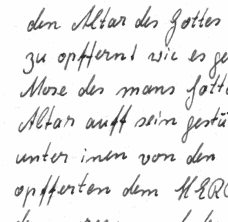 den Altar des Gottes
zu opffern / wie es ge
Mose des mans Gott
Altar auff sein gestü
unter inen von den
opfferten dem HERR